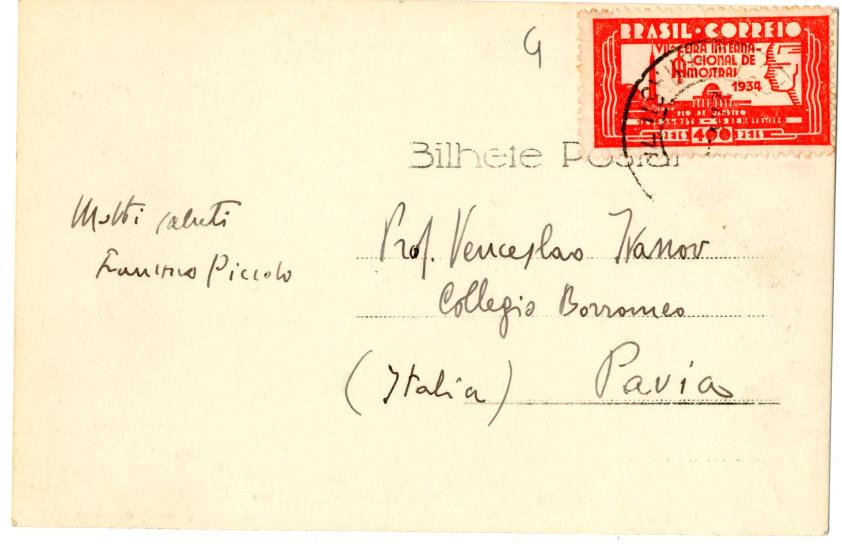 G
BRASIL·CORREIO
VII FEIRA INTERNA-
CIONAL DE
AMOSTRAS
1934
RIO DE JANEIRO
REIS 400 REIS
Bilhete Postal
Molti saluti
Francesco Piccolo
Prof. Venceslao Ivanov
Collegio Borromeo
(Italia) Pavia